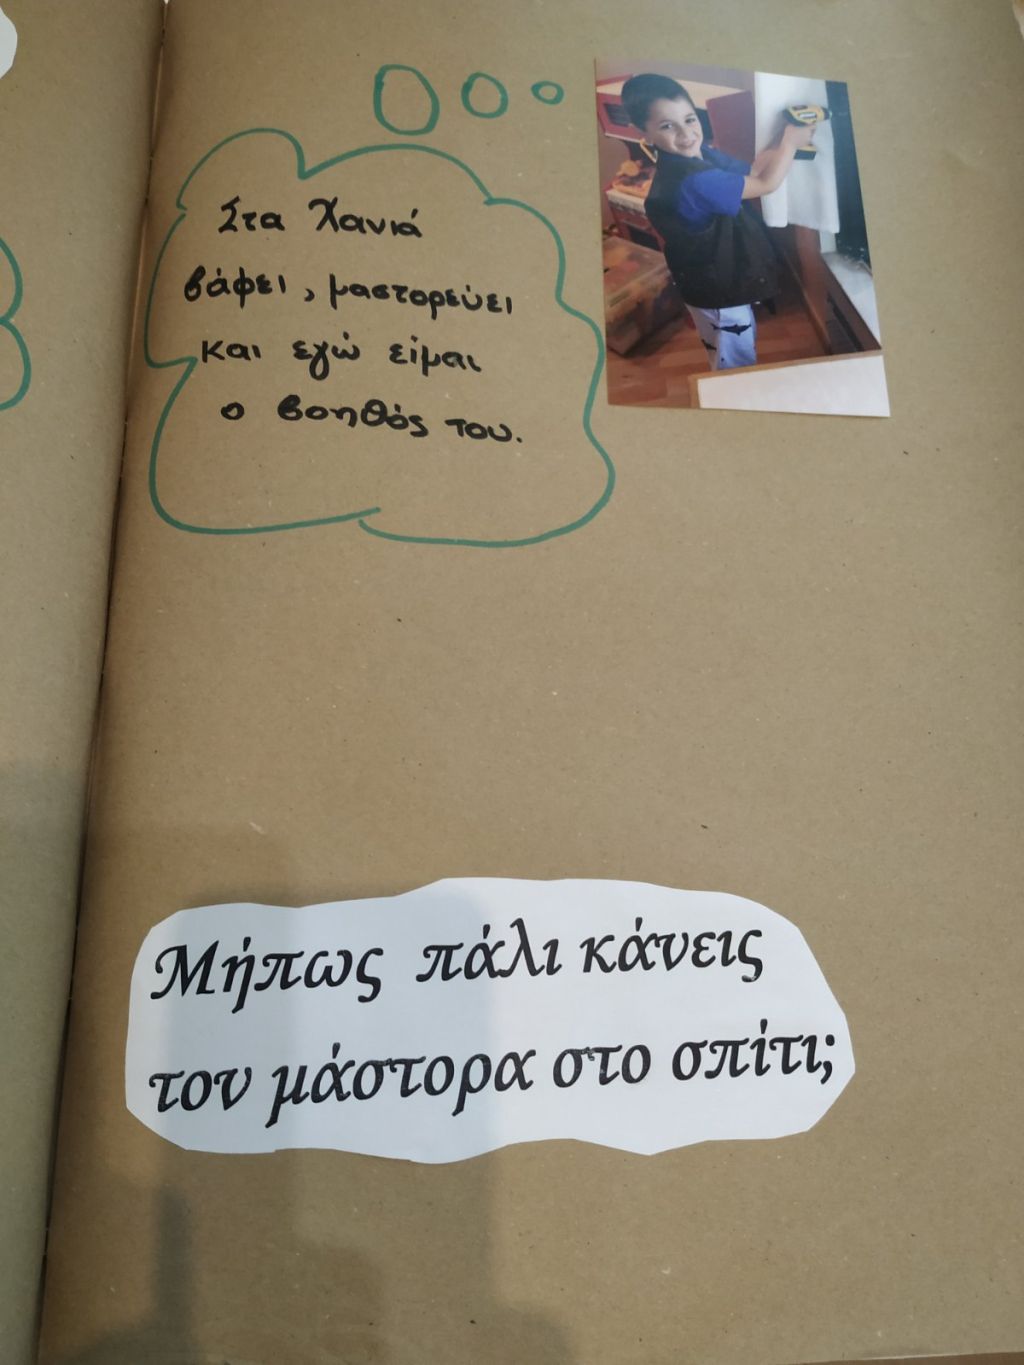 Στα Χανιά
βάφει, μαστορεύει
και εγώ είμαι
ο βοηθός του.
Μήπως πάλι κάνεις
τον μάστορα στο σπίτι;